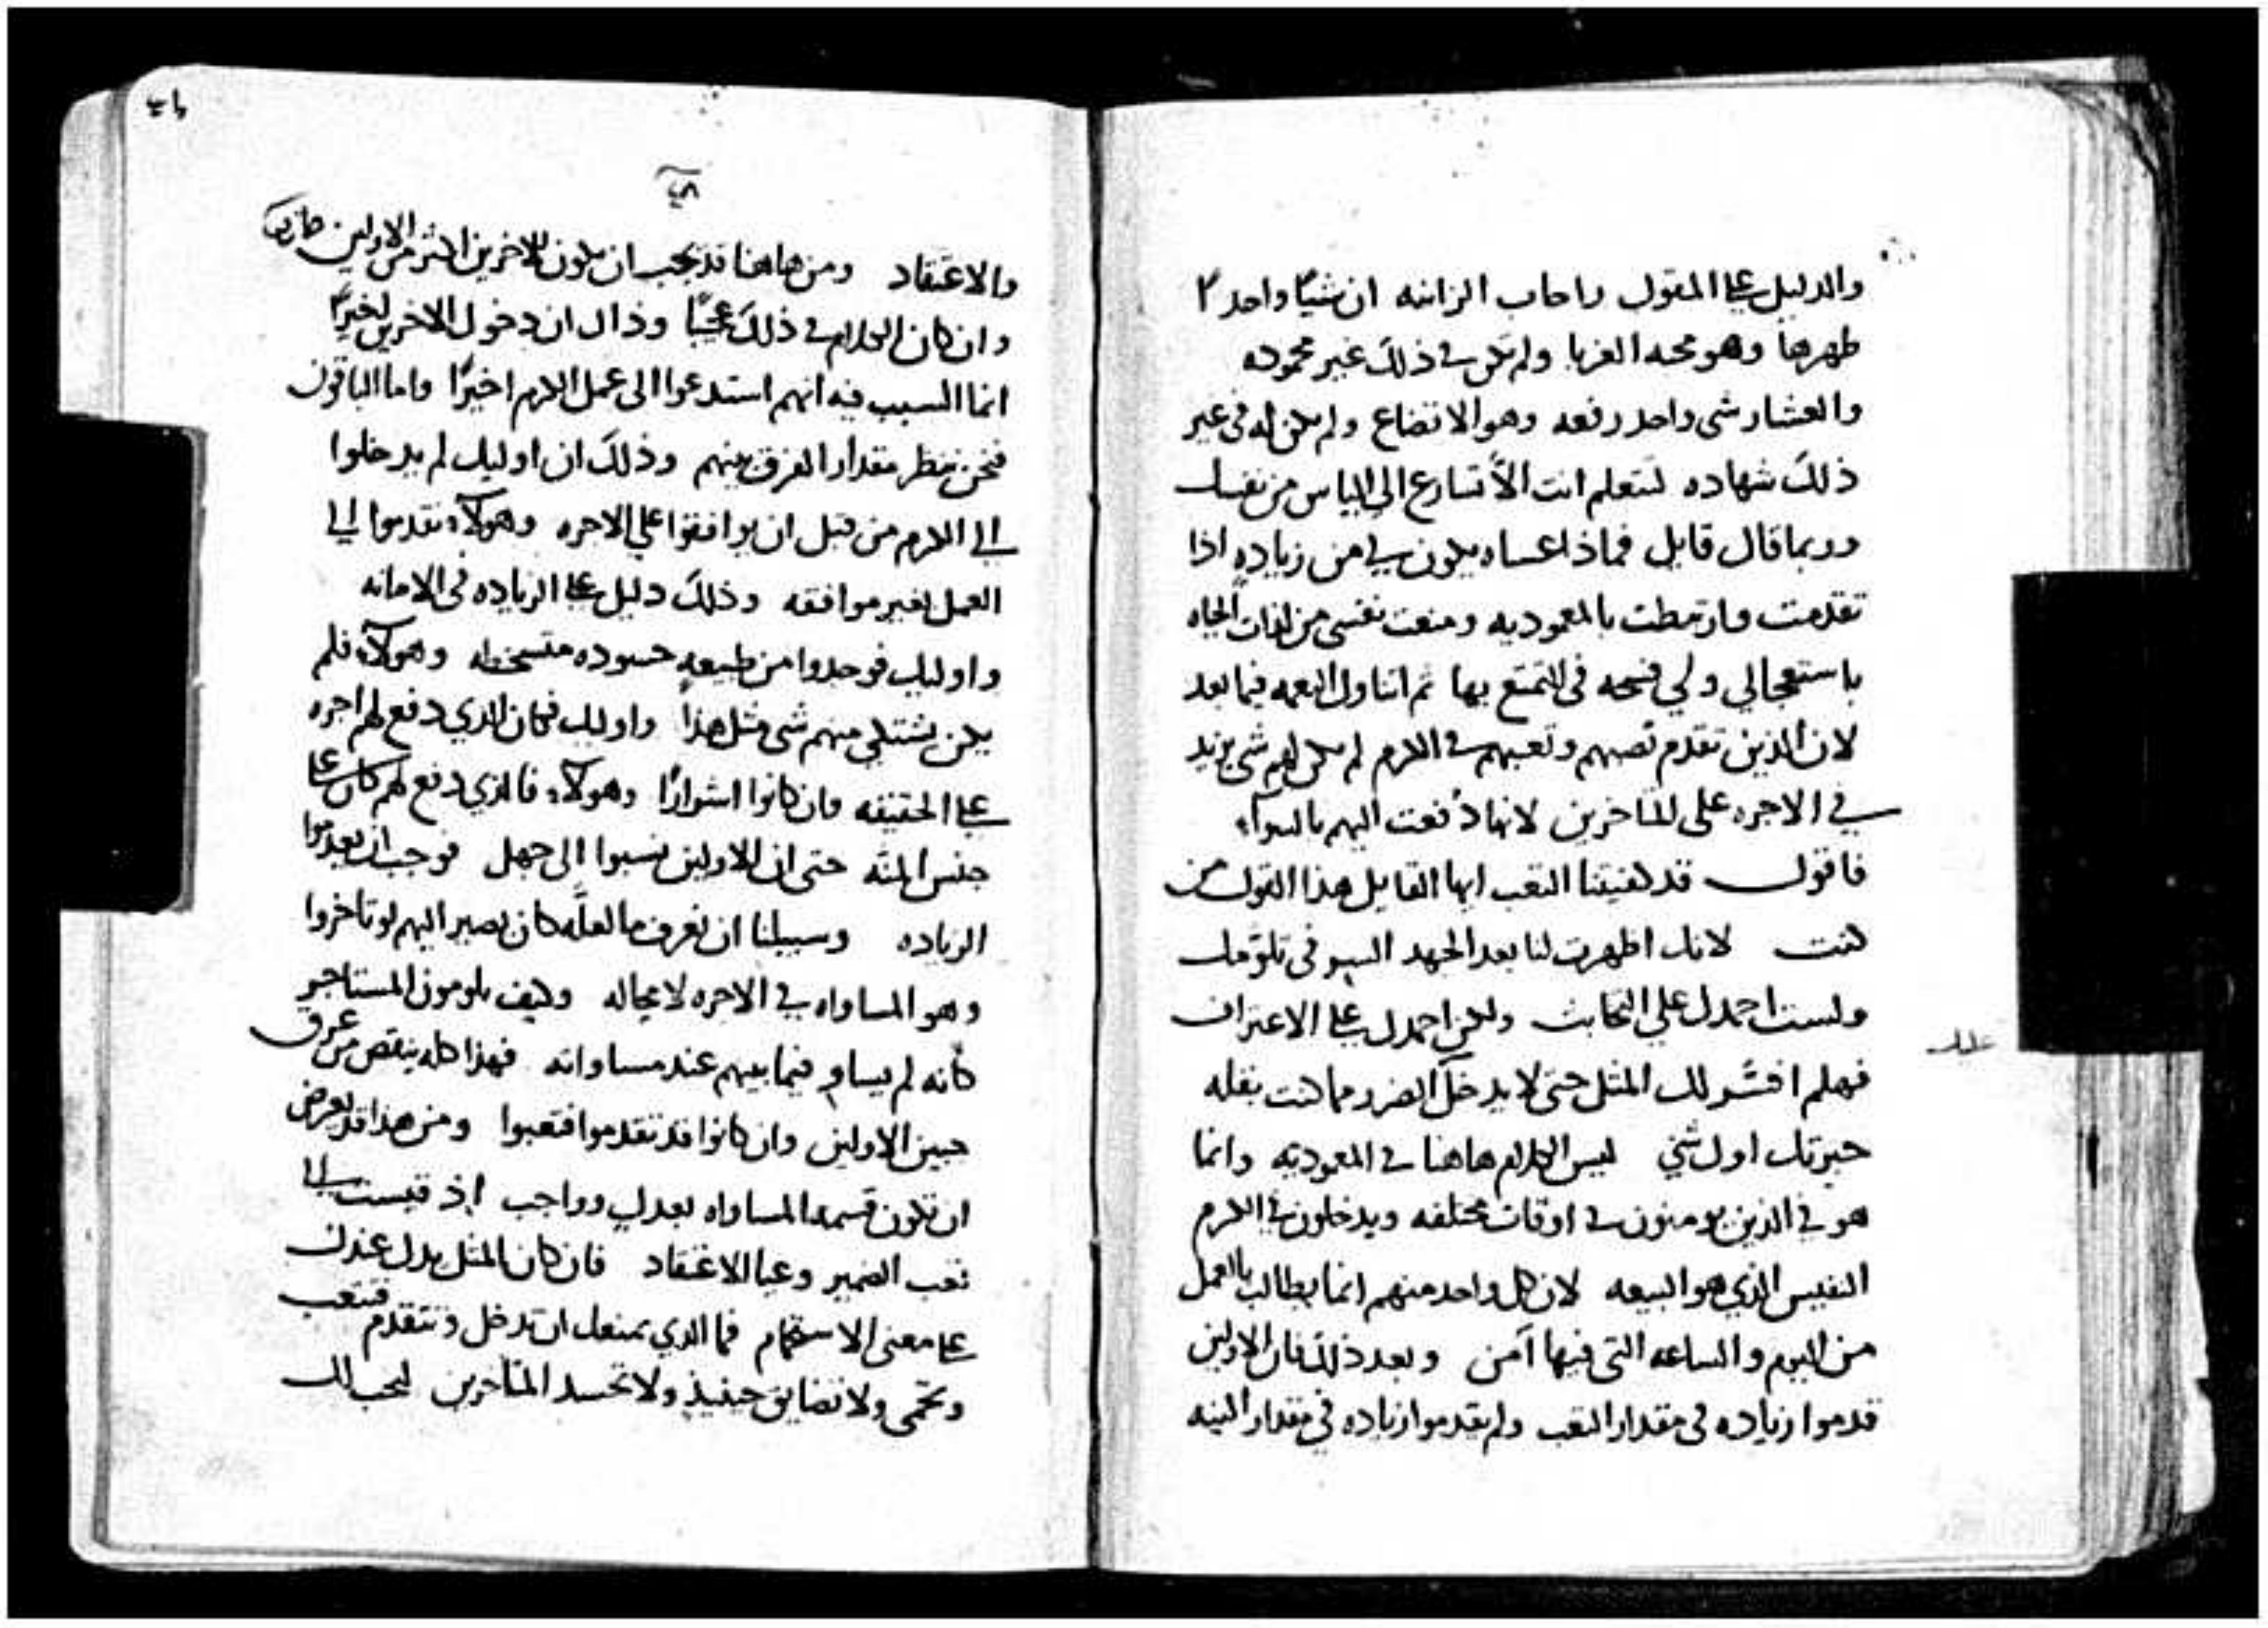 والدليل على المقول راحاب الزانيه ان شيًا واحدًا
طهرها وهو محبه الغربا ولم تكن في ذلك غير محموده
والعشار شى واحد رفعه وهو الاتضاع ولم يكن له في غير
ذلك شهاده لتعلم انت الّا تسارع الى الياس من نفسك
وربما قال قايل فماذا عساه يكون لي من زياده اذا
تقدمت وارتمطت بالمعموديه ومنعت نفسي من لذات الحياه
باستعجالي ولي فسحه فى التمتع بها ثم اتناول النعمه فيما بعد
لان الذين تقدم نصبهم وتعبهم في الكرم لم يكن لهم شى يزيد
في الاجره على المتاخرين لانها دُفعت اليهم بالسوآء
فاقول قد كفيتنا التعب ايها القايل هذا القول من
كنت لانك اظهرت لنا بعد الجهد السر فى تلومك
ولست احمدك علي التخابث ولكن احمدك على الاعتراف
فهلم افسّر لك المثل حتى لا يدخل الضرر مما كنت بقله
خبرتك اول شي ليس الكلام هاهنا في المعوديّه وانما
هو في الذين يومنون في اوقات مختلفه ويدخلون في الكرم
النفيس الذي هو البيعه لان كل واحد منهم انما يطالب بالعمل
من اليوم والساعه التى فيها آمن وبعد ذلك فان الاولين
قدموا زياده فى مقدار التعب ولم يقدموا زياده في مقدار النيه
٤٨
والاعتقاد ومن هاهنا قد يجب ان يكون للاخرين اكثر من الاولين
وان كان الكلام في ذلك عجبًا وذاك ان دخول الاخرين اخيرًا
انما السبب فيه انهم استدعوا الى عمل الكرم اخيرًا واما الباقون
فنحن ننظر مقدار الفرق بينهم وذلك ان اوليك لم يدخلوا
الي الكرم من قبل ان يوافقوا علي الاجره وهولآء تقدموا الي
العمل بغير موافقه وذلك دليل على الزياده فى الامانه
واوليك فوجدوا من طبيعه حسوده متسخطه وهولآء فلم
يكن يشتكي منهم شى مثل هذا واوليك فكان الذي دفع لهم اجره
على الحقيقه وان كانوا اشرارًا وهولآء فالذي دفع لهم كان على
جنس المنّه حتى ان الاولين نسبوا الى جهل فوجب ان يعدموا
الزياده وسبيلنا ان نعرف ما لعلّه كان يصير اليهم لو تاخروا
وهو المساواه في الاجره لا محاله وكيف يلومون المستاجر
كأنه لم يساو فيما بينهم عند مساواته فهذا كله ينقص من عرق
جبين الاولين وان كانوا قد تقدموا فتعبوا ومن هذا قد يعرض
ان تكون قسمه المساواه بعدل وواجب اذ قيست الى
تعب الضمير وعلى الاعتقاد فان كان المثل يدل عندك
على معنى الاستحمام فما الذي يمنعك ان تدخل وتتقدم فتتعب
وتحمى ولا تضايق حينيذٍ ولا تحسد المتاخرين ليجب لك